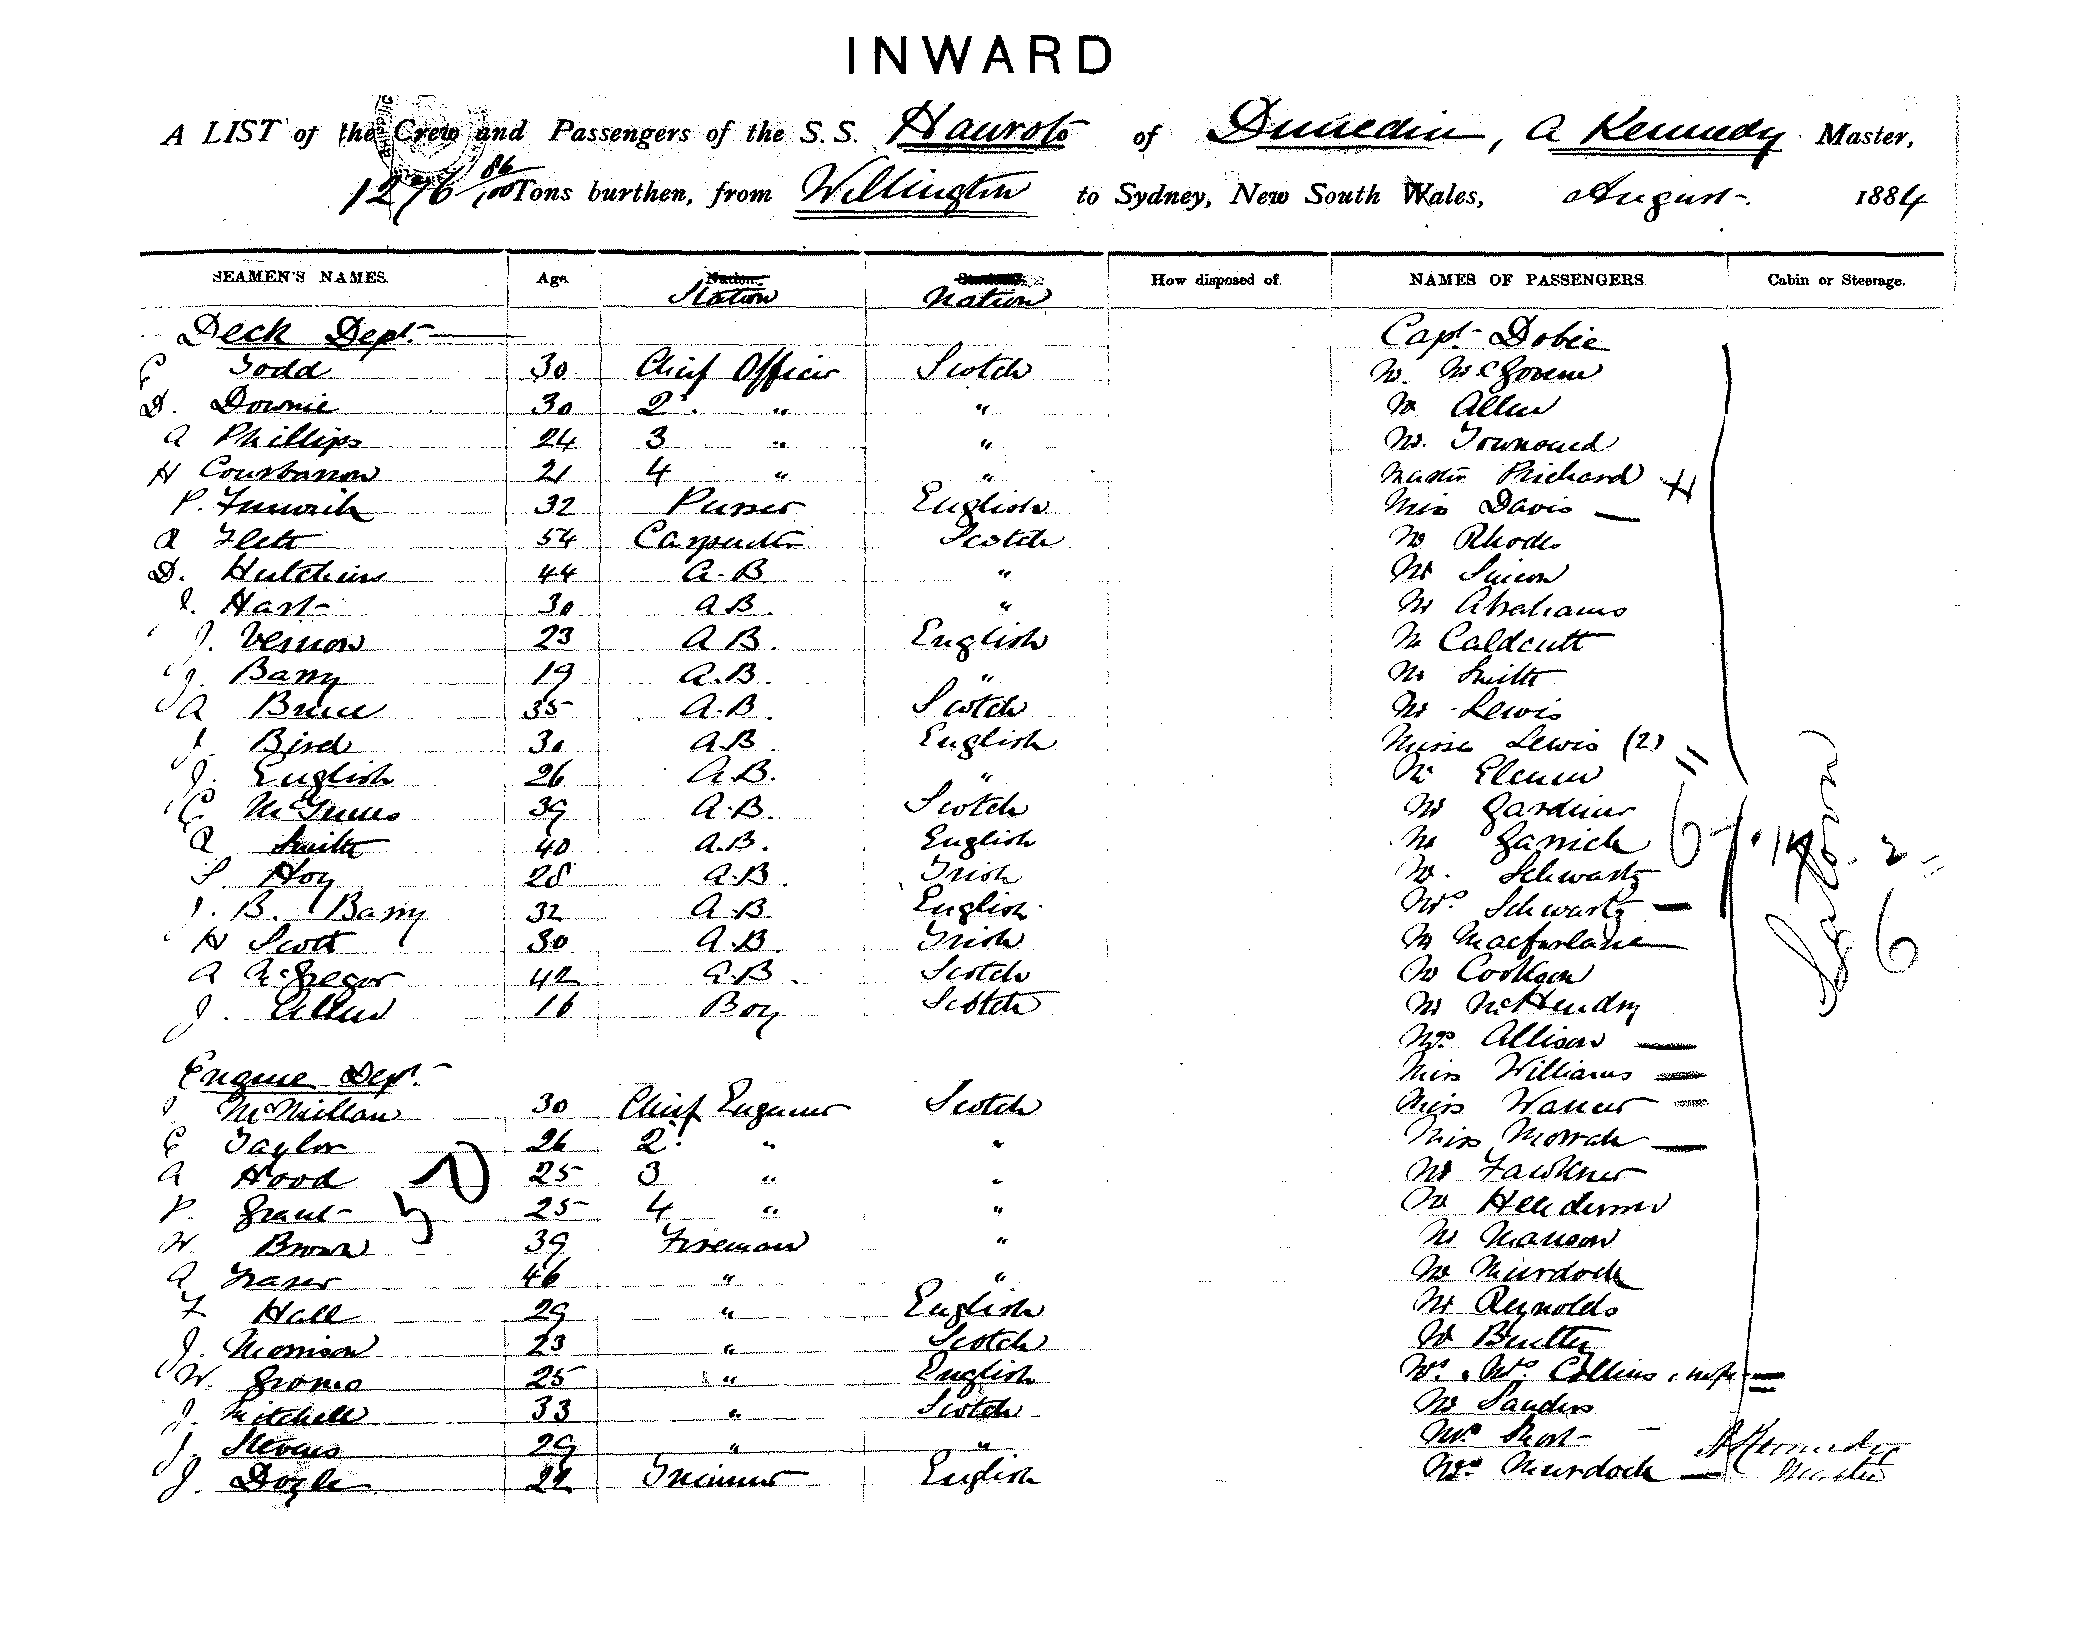 INWARD
A LIST of the Crew and Passengers of the S.S. Hauroto of Dunedin, A Kennedy Master,
1276 86/100 Tons burthen, from Wellington to Sydney, New South Wales, August 1884
SEAMEN'S NAMES. Age. Station Nation How disposed of. NAMES OF PASSENGERS Cabin or Steerage.
Deck Dept. Capt. Dobie
Todd 30 Chief Officer Scotch Mr. McGovern
D. Downie 30 2 " " Mr Allen
A Phillips 24 3 " " Mr. Townsend
H 21 4 " " Master Prichard
P. Fenwick 32 Purser English Miss Davis
R Flett 54 Carpenter Scotch Mr Rhodes
D. Hutchins 44 A.B " Mr Simon
Hart 30 A.B. " Mr Abrahams
J. Vernon 23 A B. English Mr Caldcutt
J. Barry 19 A.B. " Mr Smith
A Bruce 35 A.B. Scotch Mr Lewis
Bird 30 A.B. English Misses Lewis (2)
J. English 26 A.B. " Mr
McInnes 39 A.B. Scotch Mr Gardiner
R Smith 40 A.B. English Mr Garrick
Hoy 28 A.B. Irish Mr. Schwartz
B. Barry 32 A.B English Mrs Schwartz
H Scott 30 A.B. Irish Mr Macfarlane
A McGregor 42 A.B. Scotch Mr Cookson
J. Allen 16 Boy Scotch Mr McHendry
Mrs Allison
Engine Dept. Miss Williams
McMillan 30 Chief Engineer Scotch Miss Warner
Taylor 26 2 " " Miss
A Hood 25 3 " " Mr Fawkner
P. Grant 25 4 " " Mr Henderson
W Brown 39 Fireman " Mr Manson
A Fraser 46 " " Mr Murdoch
F Hall 29 " English Mr Reynolds
J. Morrison 23 " Scotch Mr
W. 25 " English Mr & Mrs Collins
J. Mitchell 33 " Scotch Mr Sanders
J. Stevens 29 " " Mrs Short
J. Doyle 22 Trimmer English Mrs Murdoch
Saloon
6
A Kennedy
Master